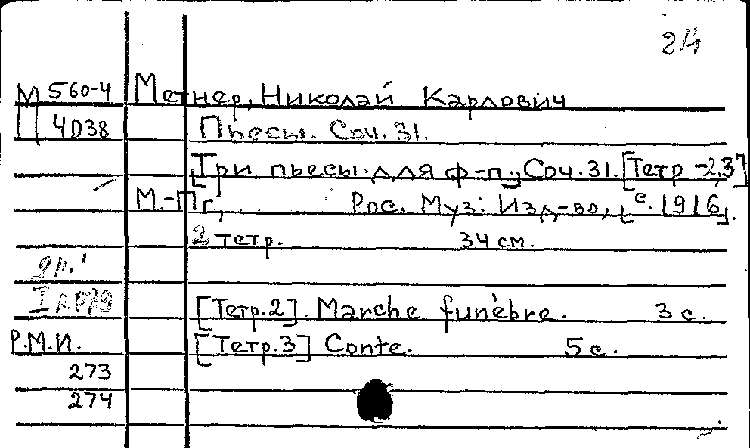 24
М 560-4 Метнер, Николай Карлович
П 4038 Пьесы. Соч. 31.
[Три пьесы для ф-п., Соч. 31. [Тетр - 2,3]
М.-Пг, Рос. Муз. Изд-во, [с. 1916].
2 тетр. 34 см.
[Тетр. 2]. Marche funèbre. 3 с.
Р.М.И. [Тетр. 3] Conte. 5 с.
273
274